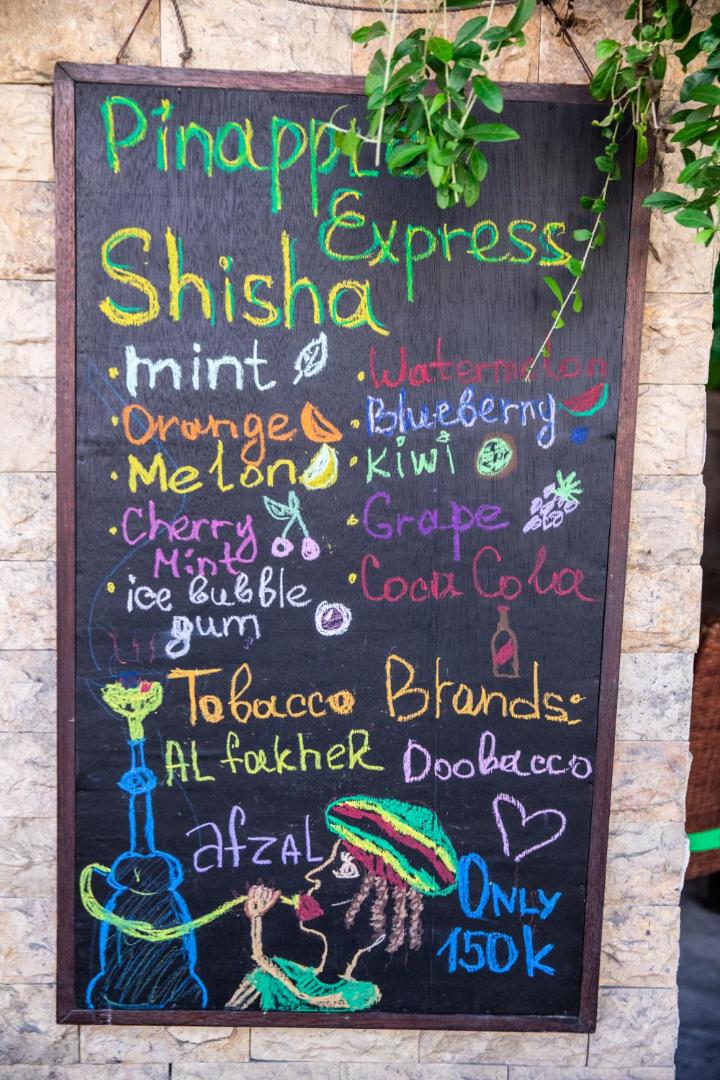 Pinapple
Express
Shisha
mint
Watermelon
Orange
Blueberry
Melon
Kiwi
Cherry
Mint
Grape
ice bubble
gum
Coca Cola
Tobacco Brands:
AL fakheR
Doobacco
afzAL
ONLY
150k